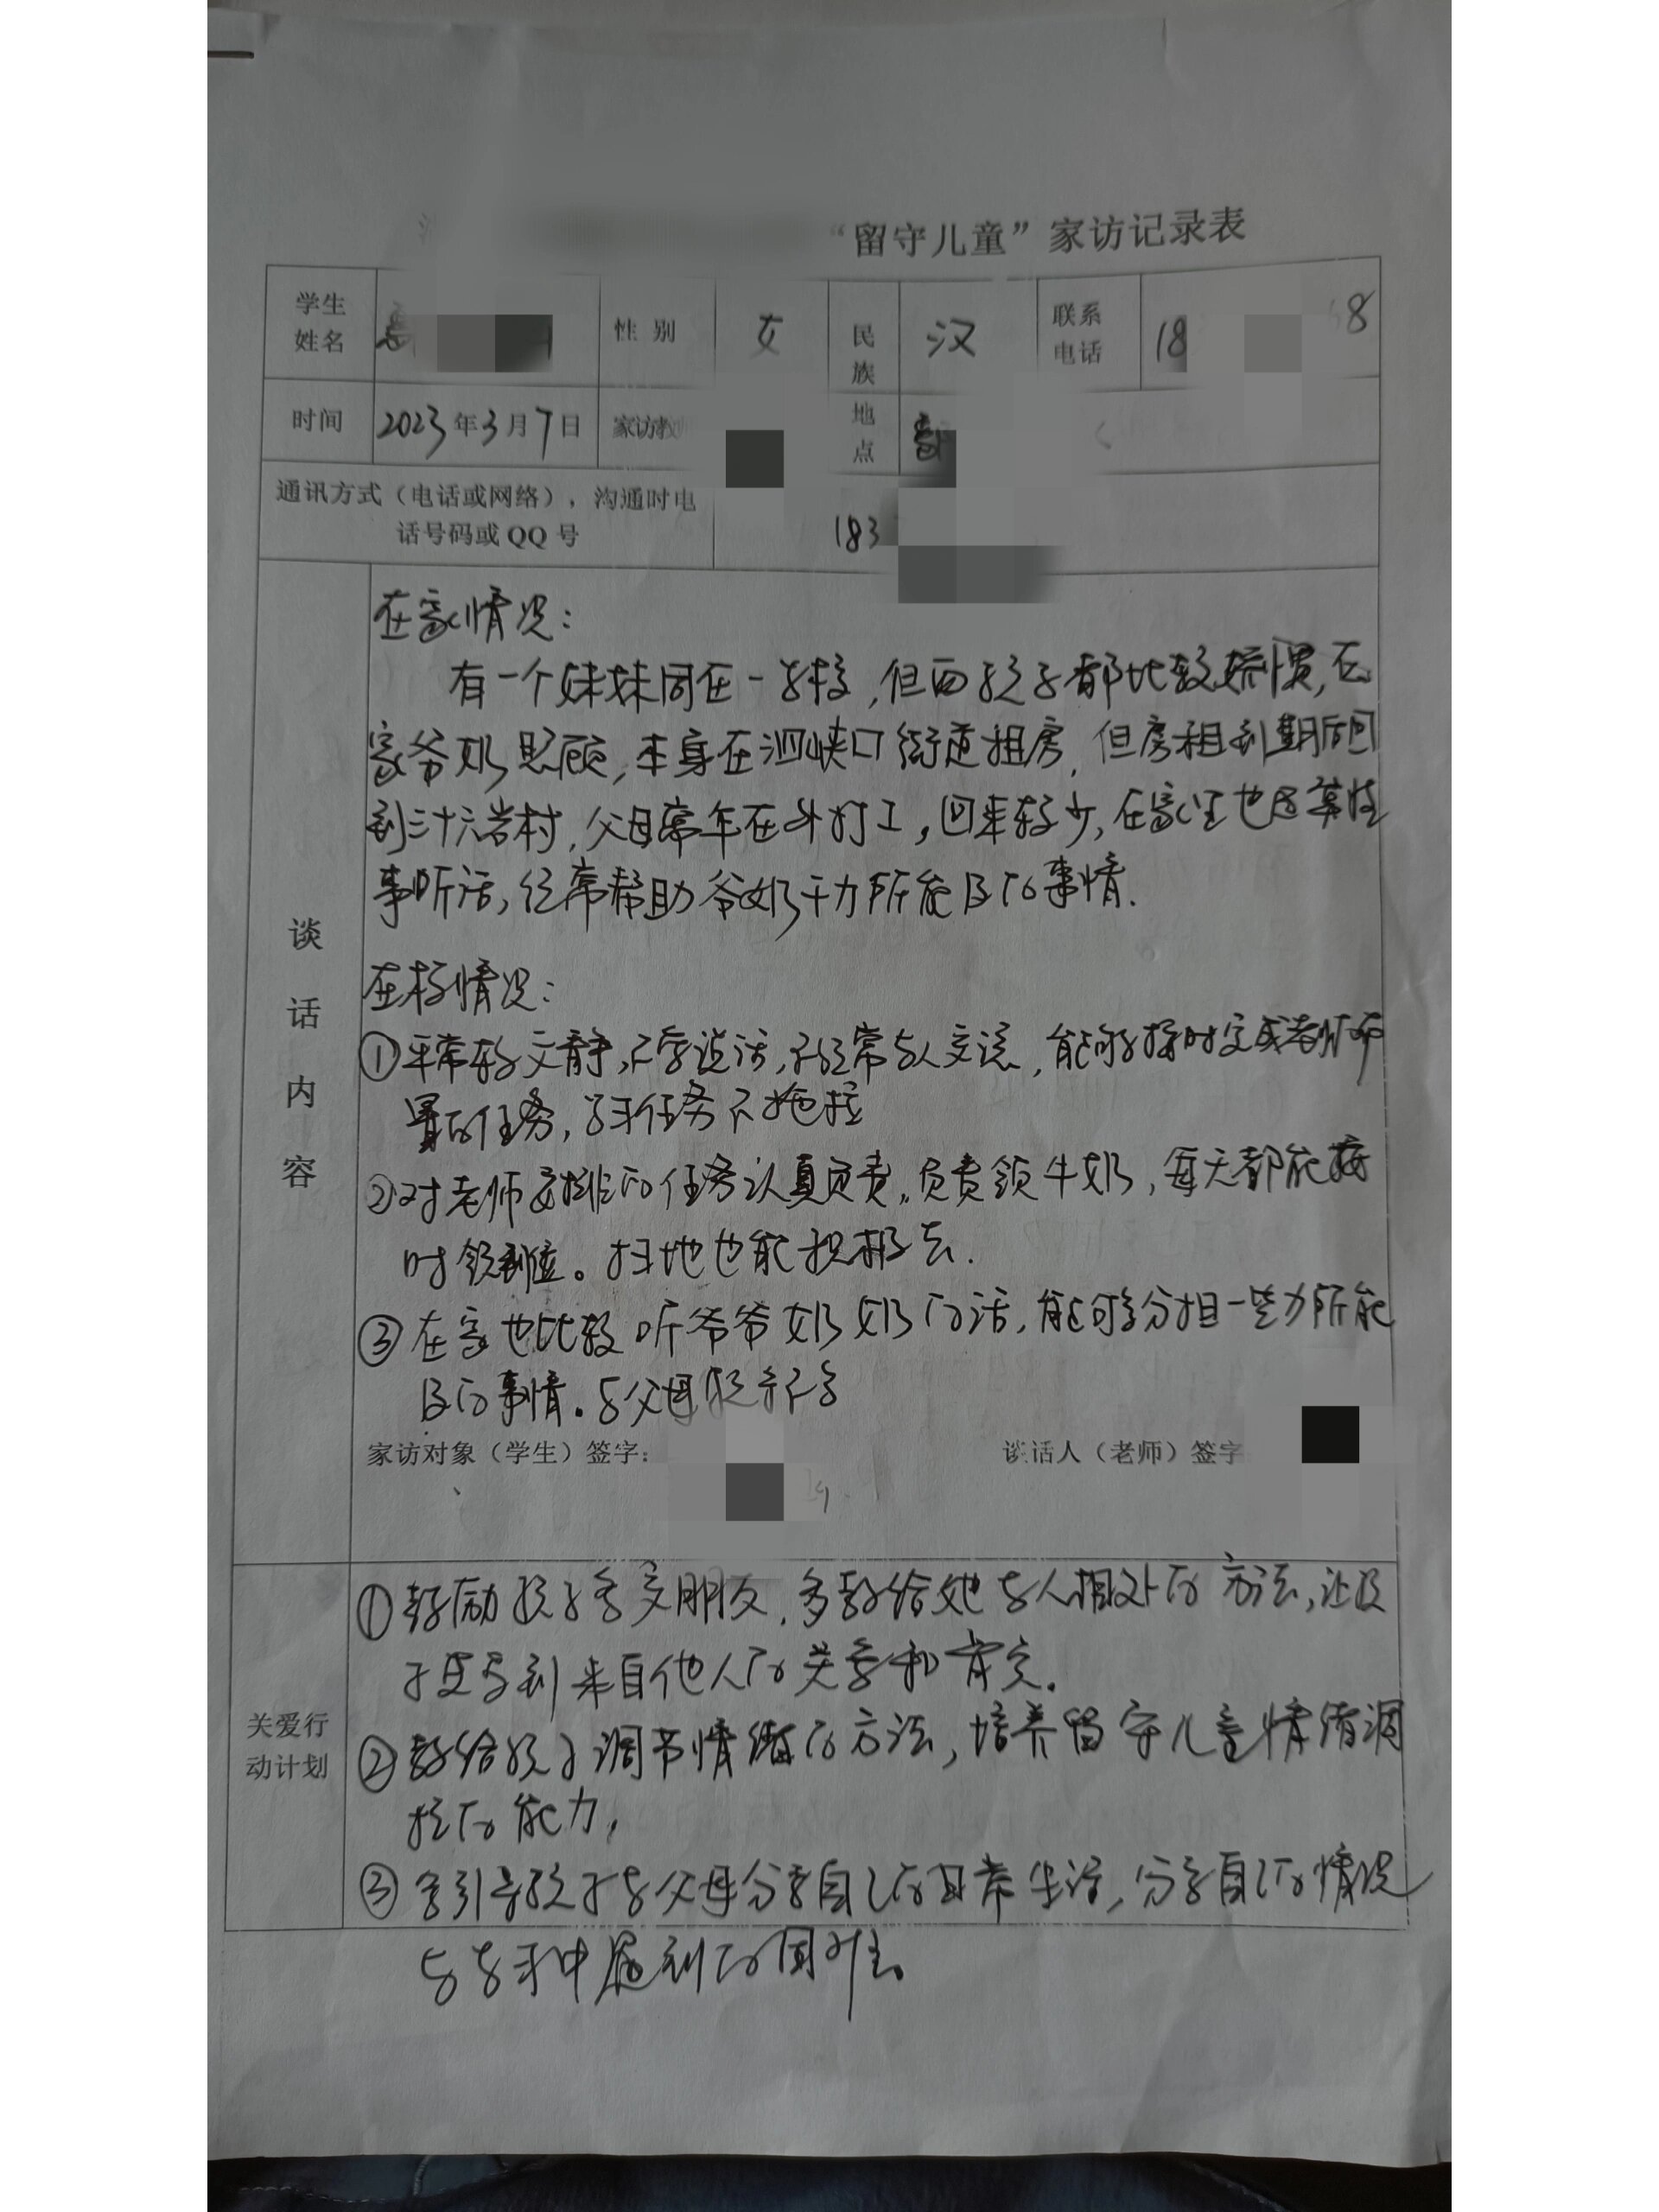 “留守儿童”家访记录表
学生姓名 性别 女 民族 汉 联系电话 18 8
时间 2023年3月7日 家访教 地点
通讯方式（电话或网络），沟通时电
话号码或QQ号 183
谈话内容
在家情况：
有一个妹妹同在一学校，但两孩子都比较娇惯，在
家爷奶照顾，本身在泗峡口街道租房，但房租到期后回
到三十六岩村，父母常年在外打工，回来较少，在家里也
事听话，经常帮助爷奶干力所能及的事情.
在校情况：
①平常较文静，不爱说话，不经常与人交流，能够按时完成老师布
置的任务，学习任务不拖拉
②对老师安排的任务认真负责，负责领牛奶，每天都能按
时领到位。扫地也能积极去.
③在家也比较听爷爷奶奶的话，能够分担一些力所能
及的事情。与父母
家访对象（学生）签字： 谈话人（老师）签字
关爱行动计划
①鼓励孩子多交朋友，多教给她与人相处的方法，让孩
子感受到来自他人的关爱和肯定.
②教给孩子调节情绪的方法，培养留守儿童情绪调
控的能力，
③多引导孩子与父母分享自己的日常生活，分享自己的情况
与学习中遇到的困难。